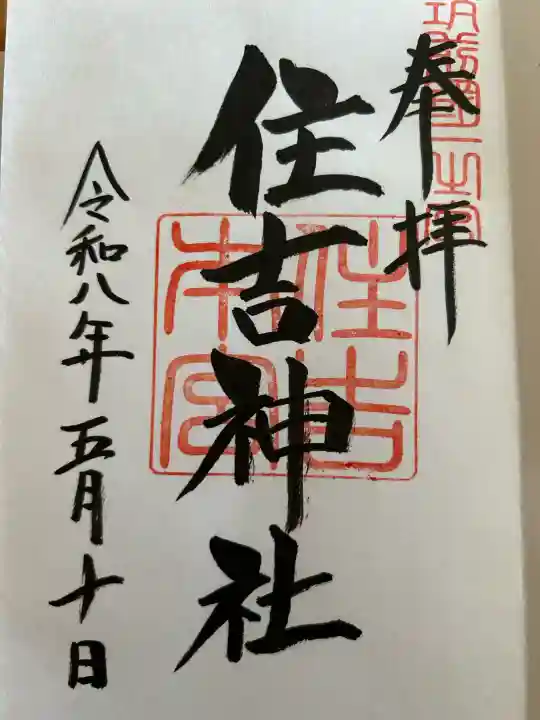 筑前國一之宮
奉拝
住吉神社
住吉本宮
令和八年五月十日